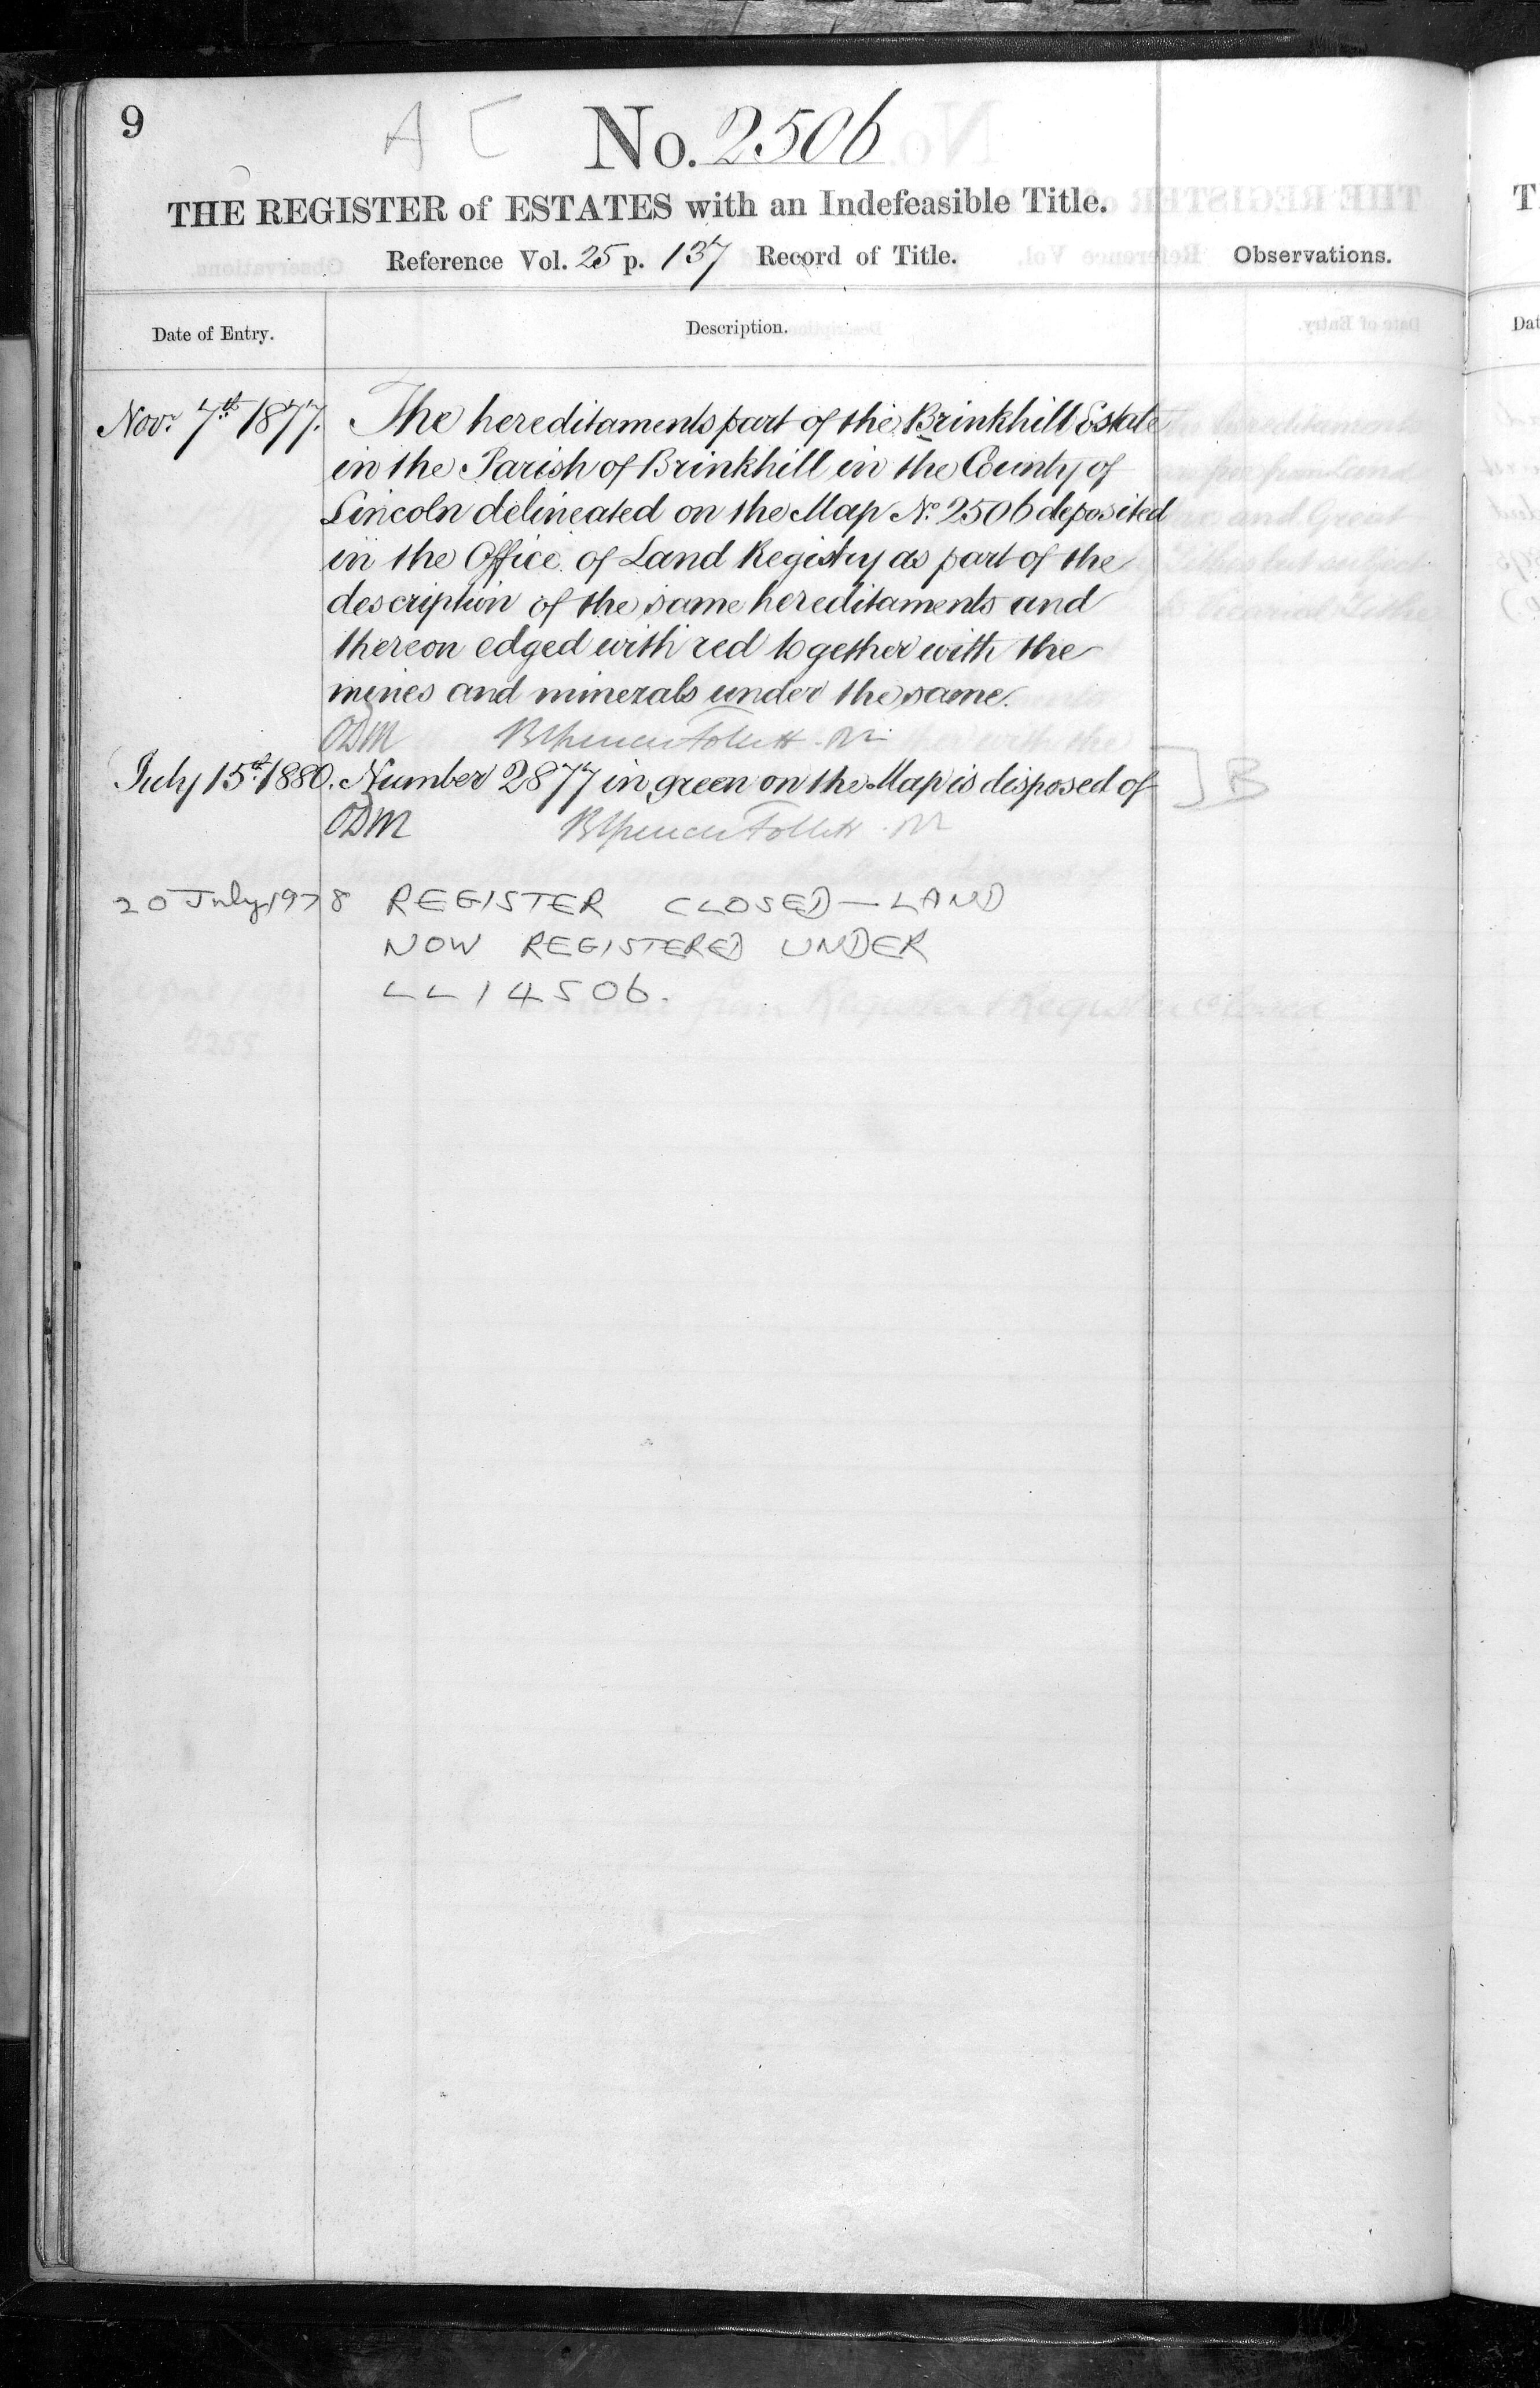 9
A C
No. 2506
THE REGISTER of ESTATES with an Indefeasible Title.
Reference Vol. 25 p. 137 Record of Title.
Observations.
Date of Entry.
Description.
Novr. 7th 1877. The hereditaments part of the Brinkhill Estate
in the Parish of Brinkhill in the County of
Lincoln delineated on the Map No. 2506 deposited
in the Office of Land Registry as part of the
description of the same hereditaments and
thereon edged with red together with the
mines and minerals under the same.
ODM B Spencer Follett
July 15th 1880. Number 2877 in green on the Map is disposed of ] B
ODM B Spencer Follett
20 July 1978 REGISTER CLOSED — LAND
NOW REGISTERED UNDER
LL14506.
T
Dat